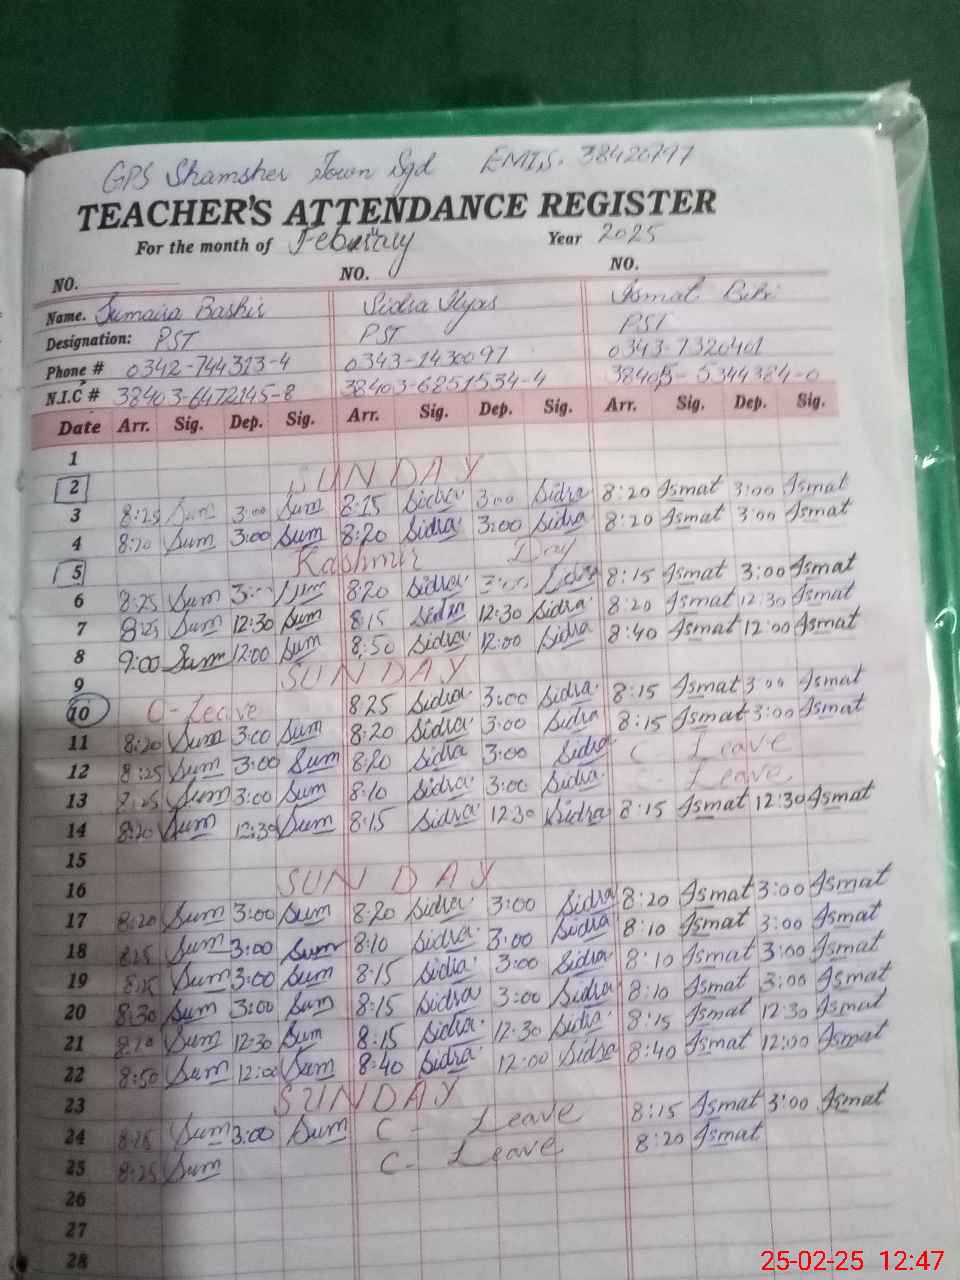 GPS Shamsher Town Sgd EMIS. 38420797
TEACHER'S ATTENDANCE REGISTER
For the month of February Year 2025
NO. NO. NO.
Name. Sumaira Bashir Sidra Ilyas Ismat Bibi
Designation: PST PST PST
Phone # 0342-744313-4 0343-1430097 0343-7320401
N.I.C # 38403-6472145-8 38403-6851534-4 38403-5344384-0
Date Arr. Sig. Dep. Sig. Arr. Sig. Dep. Sig. Arr. Sig. Dep. Sig.
1
2 SUNDAY
3 8:25 Sum 3:00 Sum 8:15 Sidra 3:00 Sidra 8:20 Ismat 3:00 Ismat
4 8:20 Sum 3:00 Sum 8:20 Sidra 3:00 Sidra 8:20 Ismat 3:00 Ismat
5 Kashmir Day
6 8:25 Sum 3:00 Sum 8:20 Sidra 3:00 Sidra 8:15 Ismat 3:00 Ismat
7 8:25 Sum 12:30 Sum 8:15 Sidra 12:30 Sidra 8:20 Ismat 12:30 Ismat
8 9:00 Sum 12:00 Sum 8:50 Sidra 12:00 Sidra 8:40 Ismat 12:00 Ismat
9 SUNDAY
10 C-Leave 8:25 Sidra 3:00 Sidra 8:15 Ismat 3:00 Ismat
11 8:20 Sum 3:00 Sum 8:20 Sidra 3:00 Sidra 8:15 Ismat 3:00 Ismat
12 8:25 Sum 3:00 Sum 8:20 Sidra 3:00 Sidra C- Leave
13 8:25 Sum 3:00 Sum 8:10 Sidra 3:00 Sidra C- Leave
14 8:20 Sum 12:30 Sum 8:15 Sidra 12:30 Sidra 8:15 Ismat 12:30 Ismat
15
16 SUNDAY
17 8:20 Sum 3:00 Sum 8:20 Sidra 3:00 Sidra 8:20 Ismat 3:00 Ismat
18 8:25 Sum 3:00 Sum 8:10 Sidra 3:00 Sidra 8:10 Ismat 3:00 Ismat
19 Sum 3:00 Sum 8:15 Sidra 3:00 Sidra 8:10 Ismat 3:00 Ismat
20 8:30 Sum 3:00 Sum 8:15 Sidra 3:00 Sidra 8:10 Ismat 3:00 Ismat
21 8:20 Sum 12:30 Sum 8:15 Sidra 12:30 Sidra 8:15 Ismat 12:30 Ismat
22 8:50 Sum 12:00 Sum 8:40 Sidra 12:00 Sidra 8:40 Ismat 12:00 Ismat
23 SUNDAY
24 8:25 Sum 3:00 Sum C- Leave 8:15 Ismat 3:00 Ismat
25 8:25 Sum C- Leave 8:20 Ismat
26
27
28
25-02-25 12:47